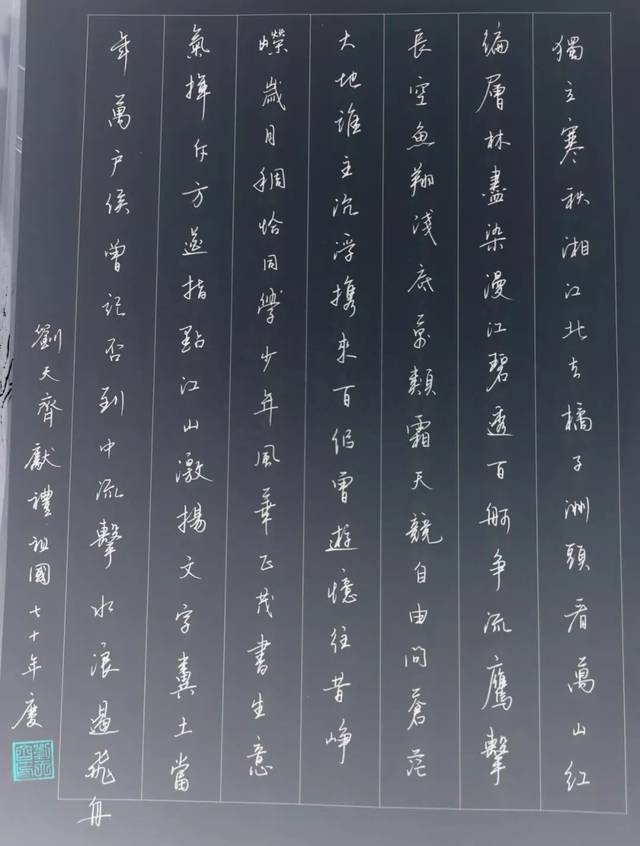 獨立寒秋湘江北去橘子洲頭看萬山紅
徧層林盡染漫江碧透百舸争流鷹擊
長空魚翔淺底萬類霜天競自由问蒼茫
大地誰主沉浮携來百侣曾遊憶往昔崢
嶸歲月稠恰同學少年風華正茂書生意
氣揮斥方遒指點江山激揚文字糞土當
年萬户侯曾记否到中流擊水浪遏飛舟
劉天齊獻禮祖國七十年慶